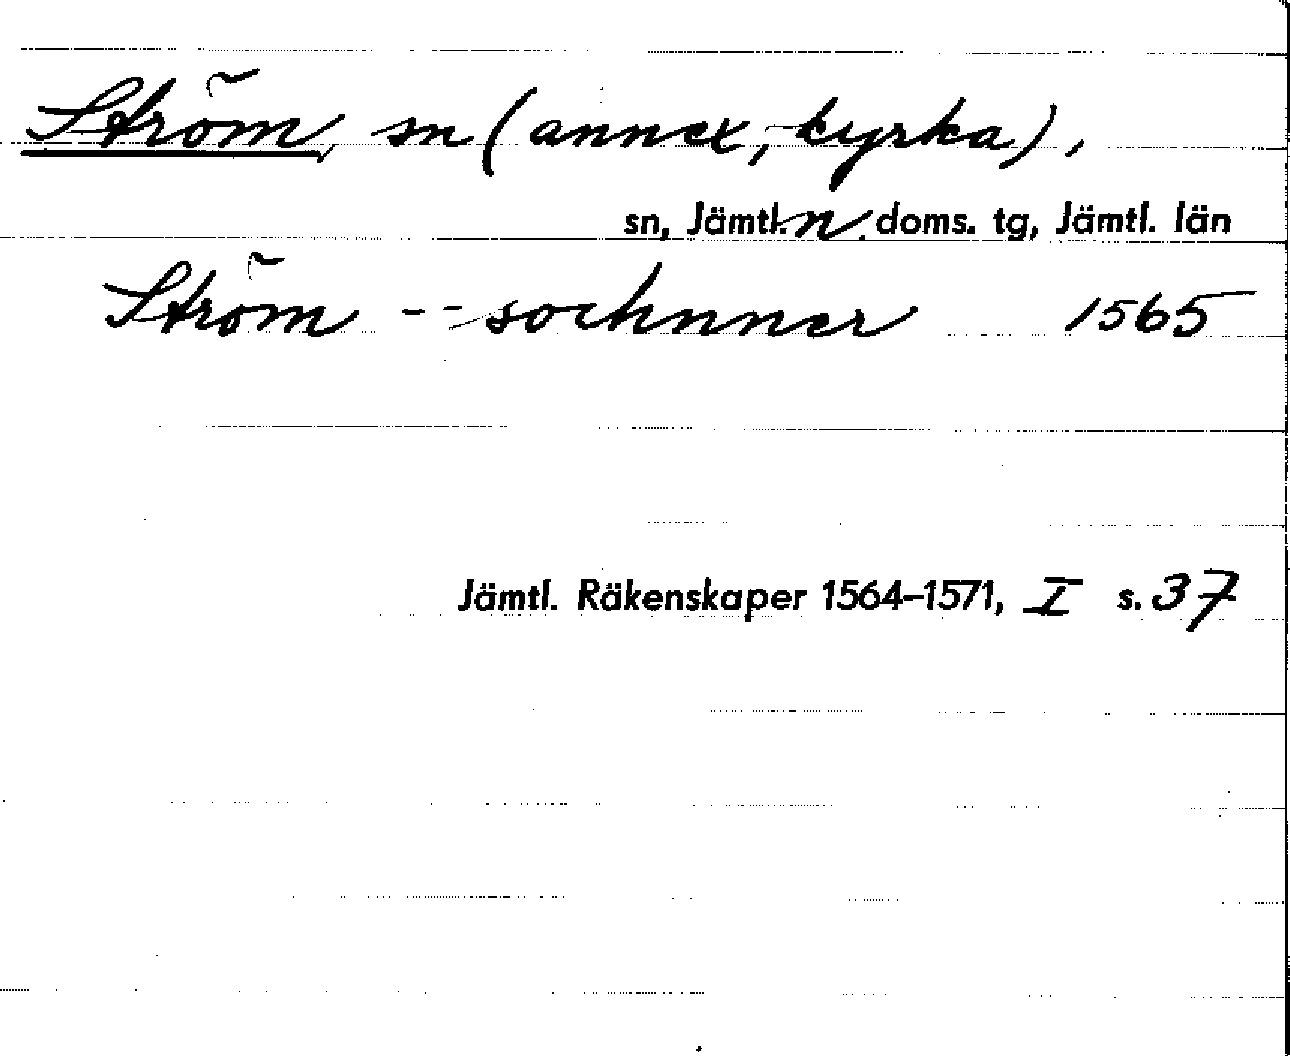 Ström, sn (annex, kyrka),
sn, Jämtl. n. doms. tg, Jämtl. län
Ström -- sochnner 1565
Jämtl. Räkenskaper 1564-1571, I s. 37